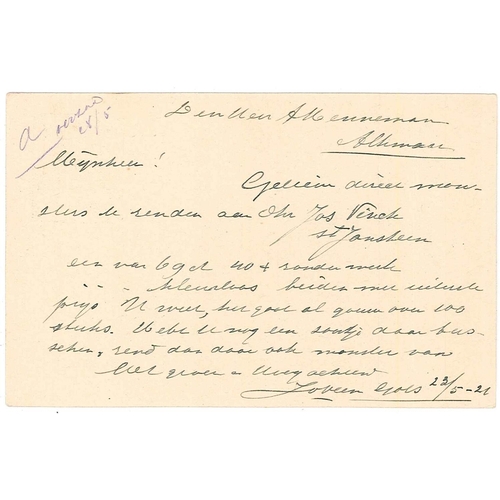 a verzo
28/5
Den Heer A Menneman
Alkmaar
Mijnheer!
Gelieve direct mon-
sters te zenden aan Dhr Jos Vinck
st Jansteen
een van 6 gd 40+ zonder merk
" - kleurloos beiden met uiterste
prijs U weet, het gaat al gauw over 100
stuks. Hebt U nog een soortje daar tus-
schen, zend dan daar ook monster van
Met groet Hoogachtend
22/5-21